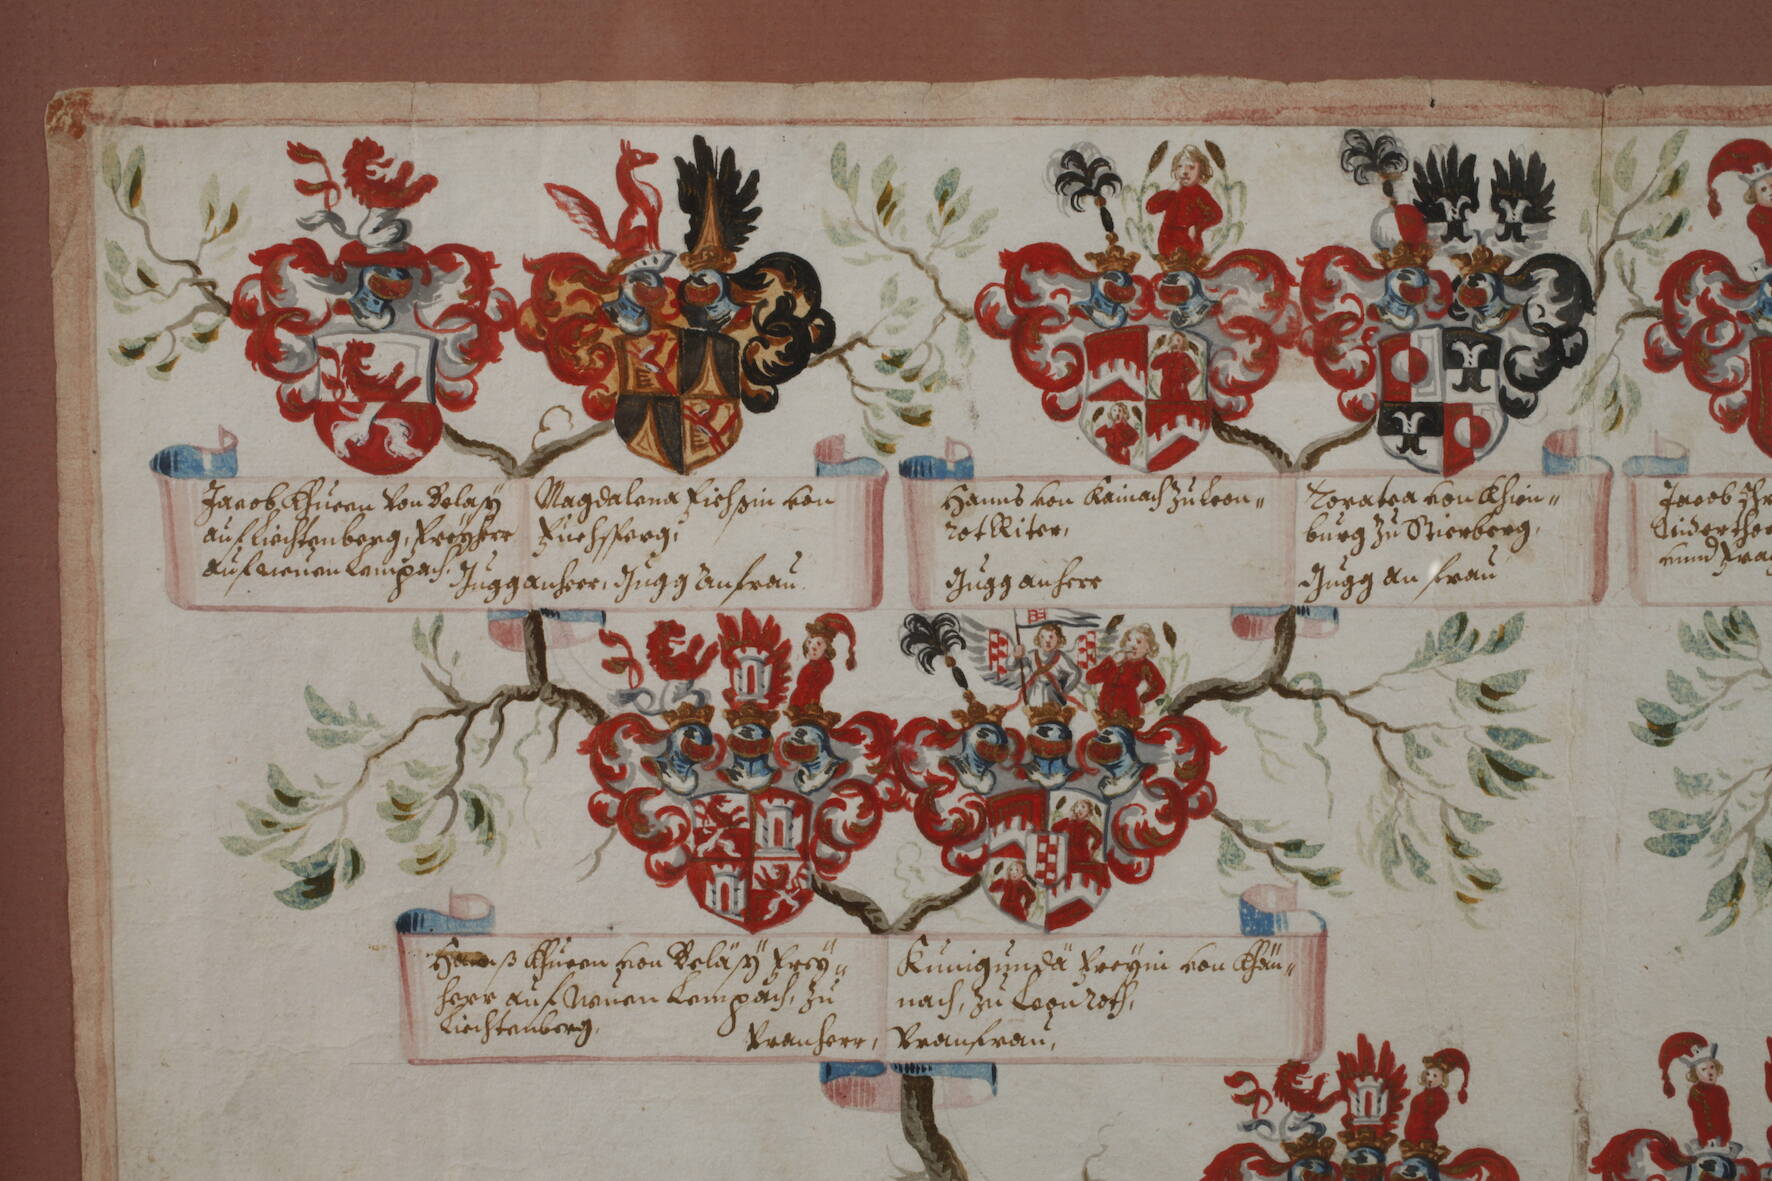 Jacob Khuen von Belasÿ
auf Liechtenberg, Freÿherr
auf neuen Lempach.
Jugg anherr,
Magdalena Fichsin von
Fuchsperg,
Jugg Anfrau.
Hanns von Kainach zu Leon„
rot Riter,
Jugg anherr
Doratea von Khien„
burg zu Stierberg,
Jugg an frau
Jacob
Hannß Khuen von Beläsÿ Freÿ„
herr auf Neuen Lempach, zu
Liechtenberg,
Vranherr,
Kunigunda Freÿin von Khäi„
nach, zu Leonroth,
Vranfrau,